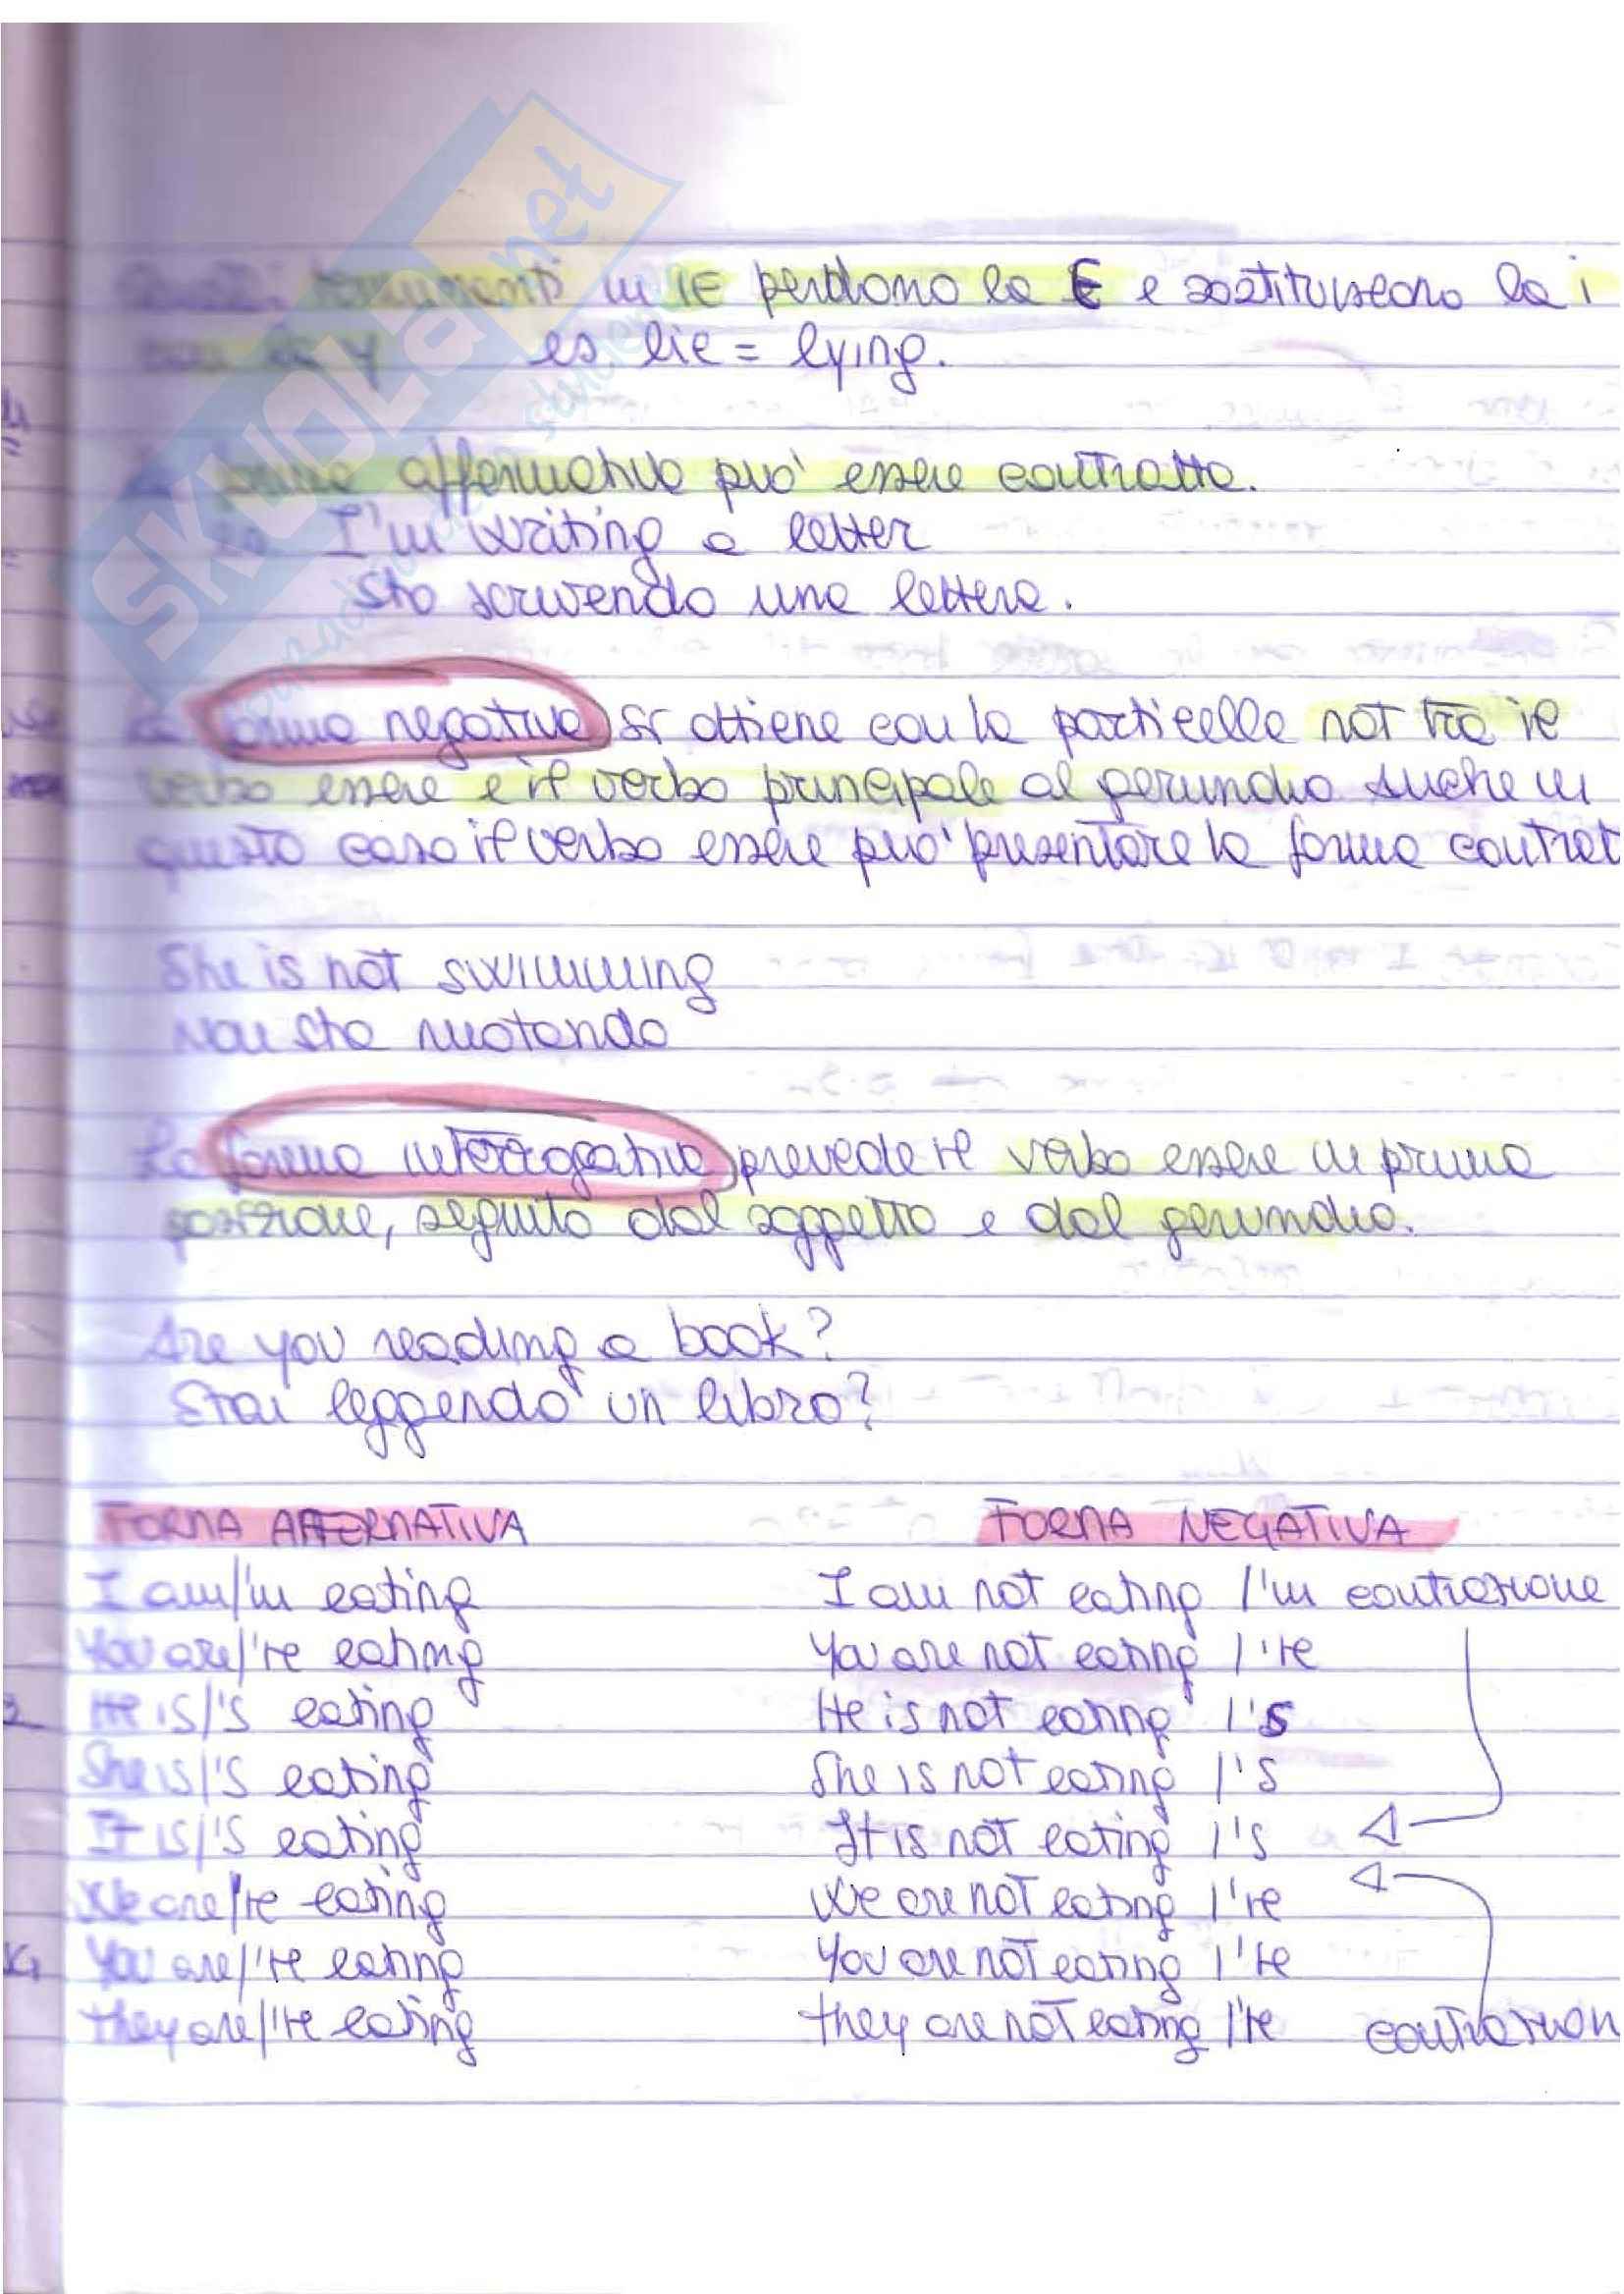 Skuola.net
terminanti in IE perdono la E e sostituiscono la i
con la y es lie = lying.
La forma affermativa può essere contratta.
es I'm writing a letter
Sto scrivendo una lettera.
La forma negativa si ottiene con la particella not tra il
verbo essere e il verbo principale al gerundio anche in
questo caso il verbo essere puo' presentare la forma contrat
She is not swimming
Non sta nuotando
La forma interrogativa prevede il verbo essere in prima
posizione, seguito dal soggetto e dal gerundio.
Are you reading a book?
Stai leggendo un libro?
FORMA AFFERMATIVA FORMA NEGATIVA
I am/'m eating I am not eating /'m contrazione
You are/'re eating You are not eating /'re
He is/'s eating He is not eating /'s
She is/'s eating She is not eating /'s
It is/'s eating It is not eating /'s
We are/'re eating We are not eating /'re
You are/'re eating You are not eating /'re
they are/'re eating they are not eating /'re contrazion